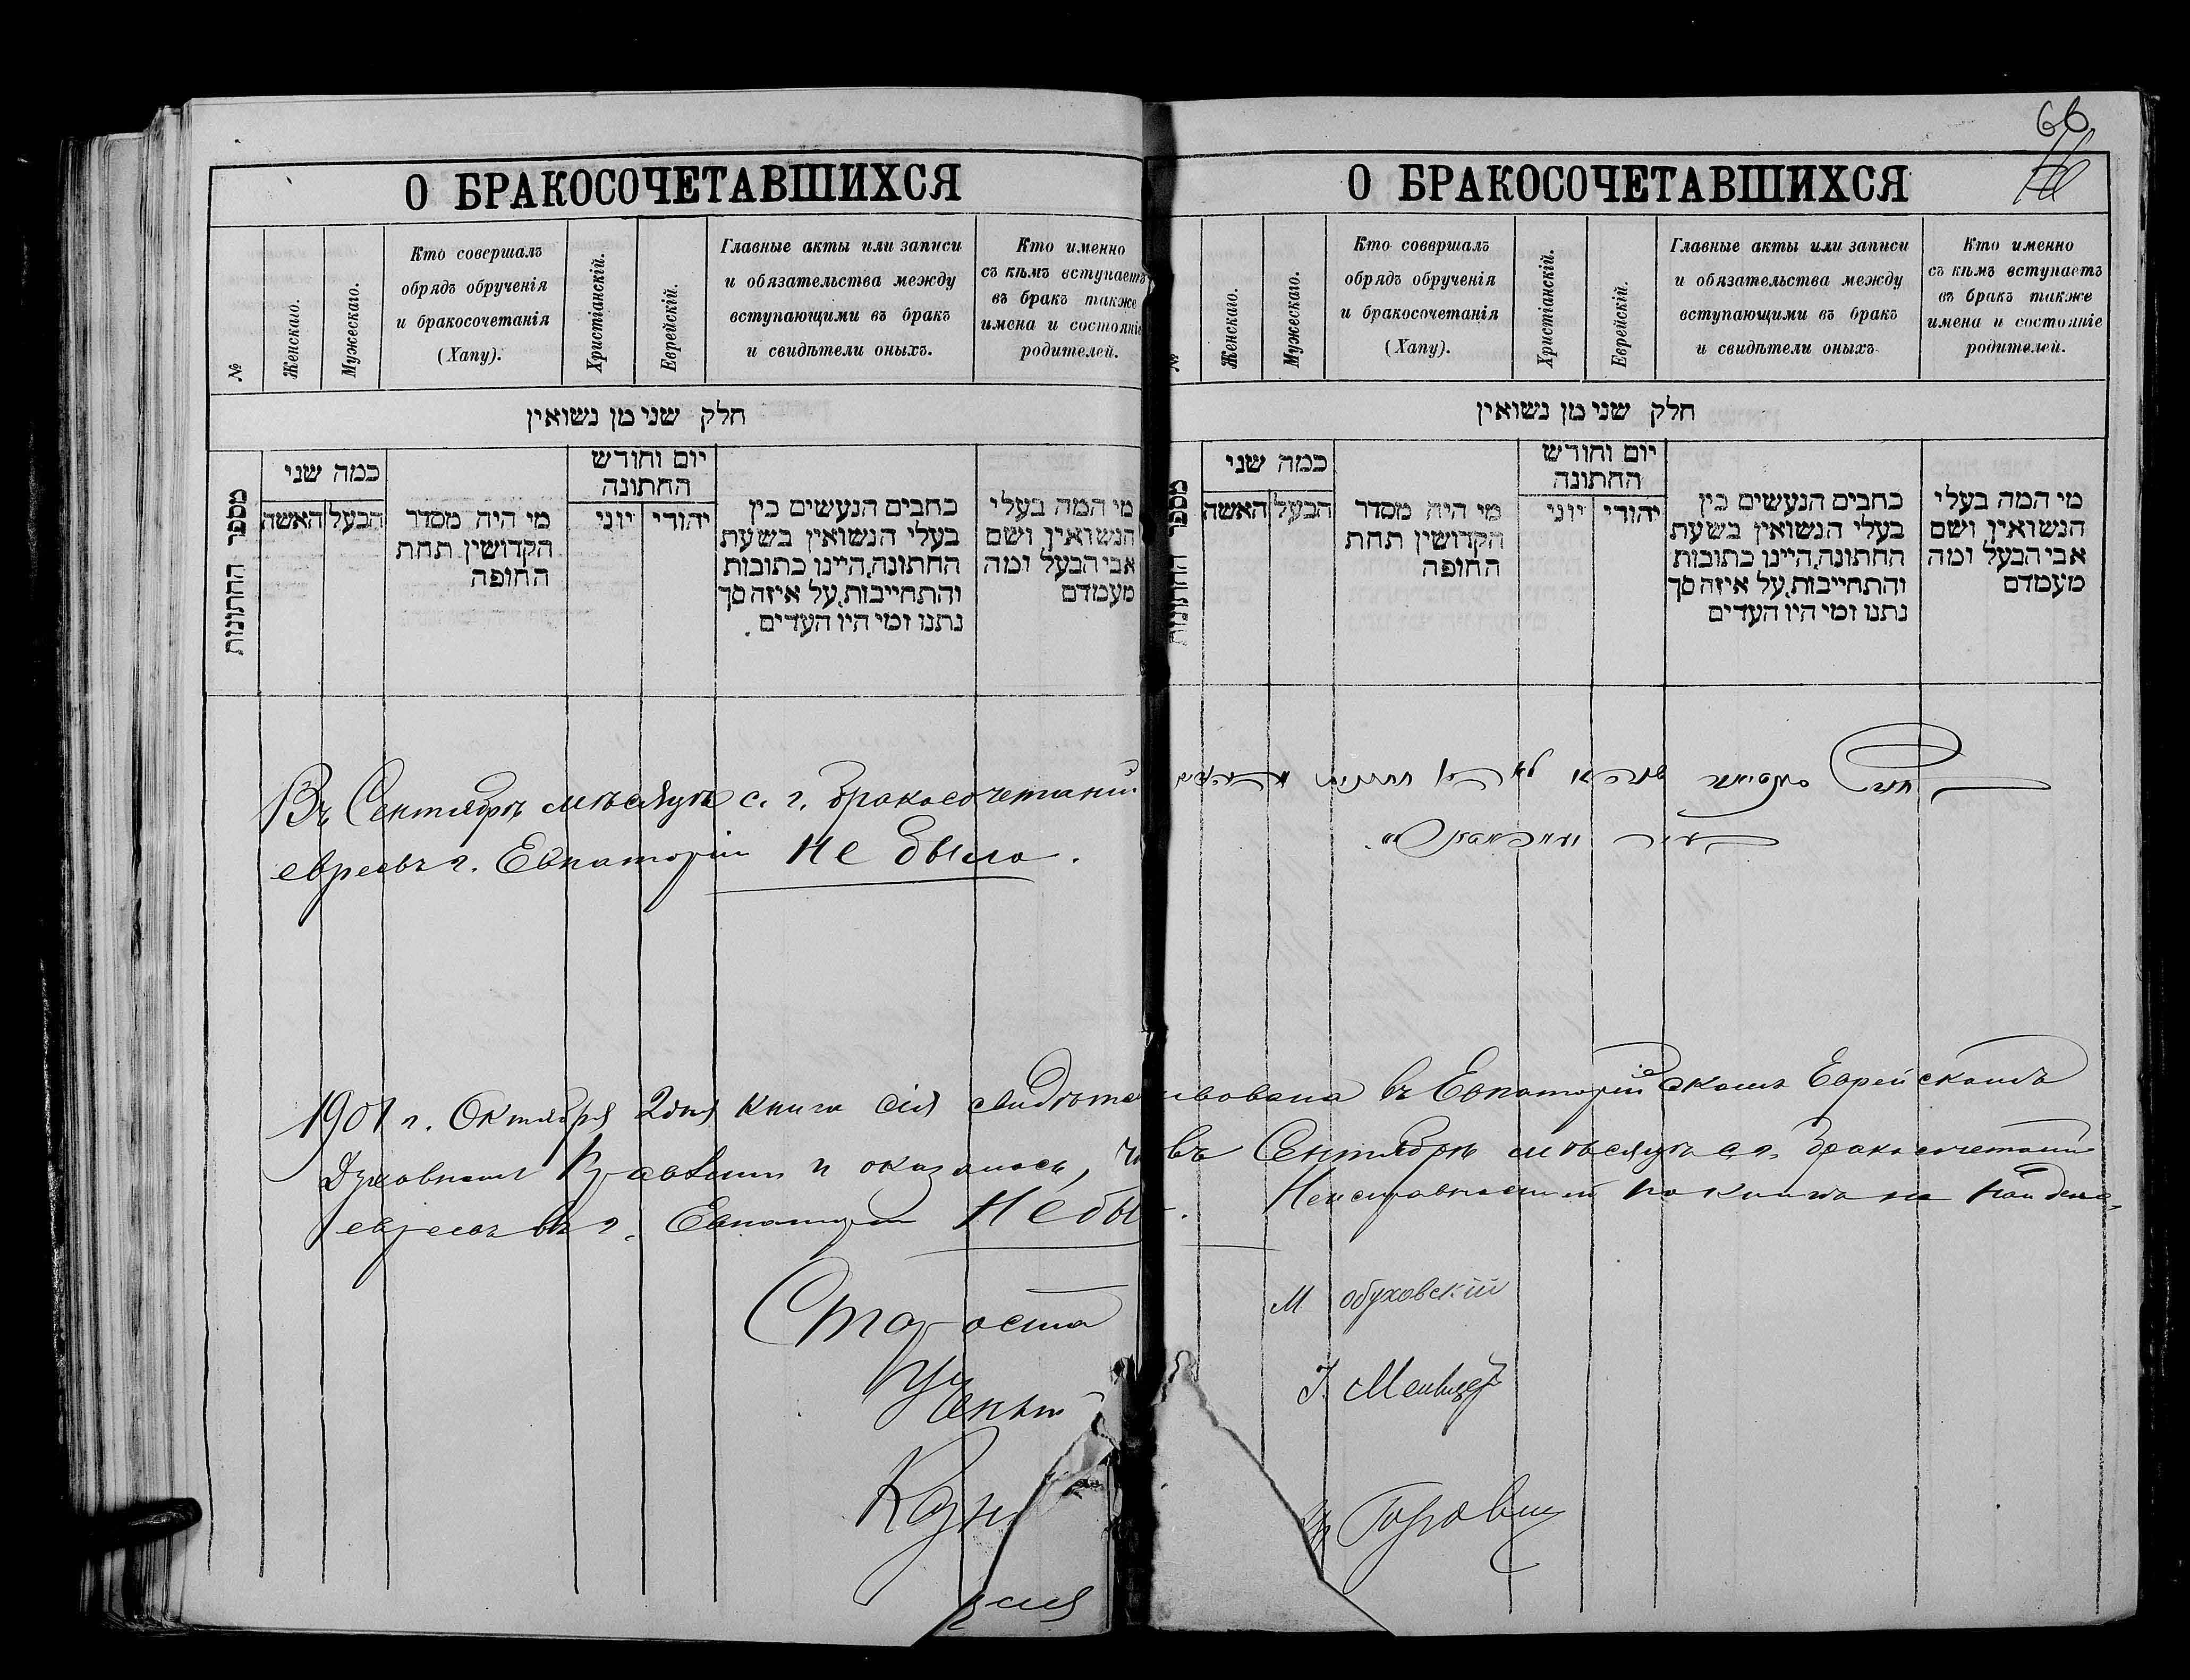 66
О БРАКОСОЧЕТАВШИХСЯ
№
Женскаго.
Мужескаго.
Кто совершалъ
обрядъ обрученія
и бракосочетанія
(Хапу).
Христіанскій.
Еврейскій.
Главные акты или записи
и обязательства между
вступающими въ бракъ
и свидѣтели оныхъ.
Кто именно
съ кѣмъ вступаетъ
въ бракъ также
имена и состояніе
родителей.
חלק שני מן נשואין
מספר החתונות
כמה שני
האשה
הבעל
מי היה מסדר
הקדושין תחת
החופה
יום וחודש
החתונה
יוני
יהודי
כתבים הנעשים בין
בעלי הנשואין בשעת
החתונה, היינו כתובות
והתחייבות, על איזה סך
נתנו ומי היו העדים.
מי המה בעלי
הנשואין ושם
אבי הבעל ומה
מעמדם
Въ Сентябрѣ мѣсяцѣ с. г. бракосочетаній
евреевъ г. Евпаторіи не было.
О БРАКОСОЧЕТАВШИХСЯ
№
Женскаго.
Мужескаго.
Кто соввршалъ
обрядъ обрученія
и бракосочетанія
(Хапу).
Христіанскій.
Еврейскій.
Главные акты или записи
и обязательства между
вступающими въ бракъ
и свидѣтели оныхъ.
Кто именно
съ кѣмъ вступаетъ
въ бракъ также
имена и состояніе
родителей.
חלק שני מן נשואין
מספר החתונות
כמה שני
האשה
הבעל
מי היה מסדר
הקדושין תחת
החופה
יום וחודש
החתונה
יוני
יהודי
כתבים הנעשים בין
בעלי הנשואין בשעת
החתונה, היינו כתובות
והתחייבות, על איזה סך
נתנו ומי היו העדים
מי המה בעלי
הנשואין ושם
אבי הבעל ומה
מעמדם
1901 г. Октября 2 дня книга сія свидѣтельствована въ Евпаторійскомъ Еврейскомъ
Духовномъ Правленіи и оказалось, что въ Сентябрѣ мѣсяцѣ с. г. бракосочетаній
евреевъ въ г. Евпаторіи Не бы . Неисправностей по книгѣ не найдено.
Староста М Обуховскій
Казн